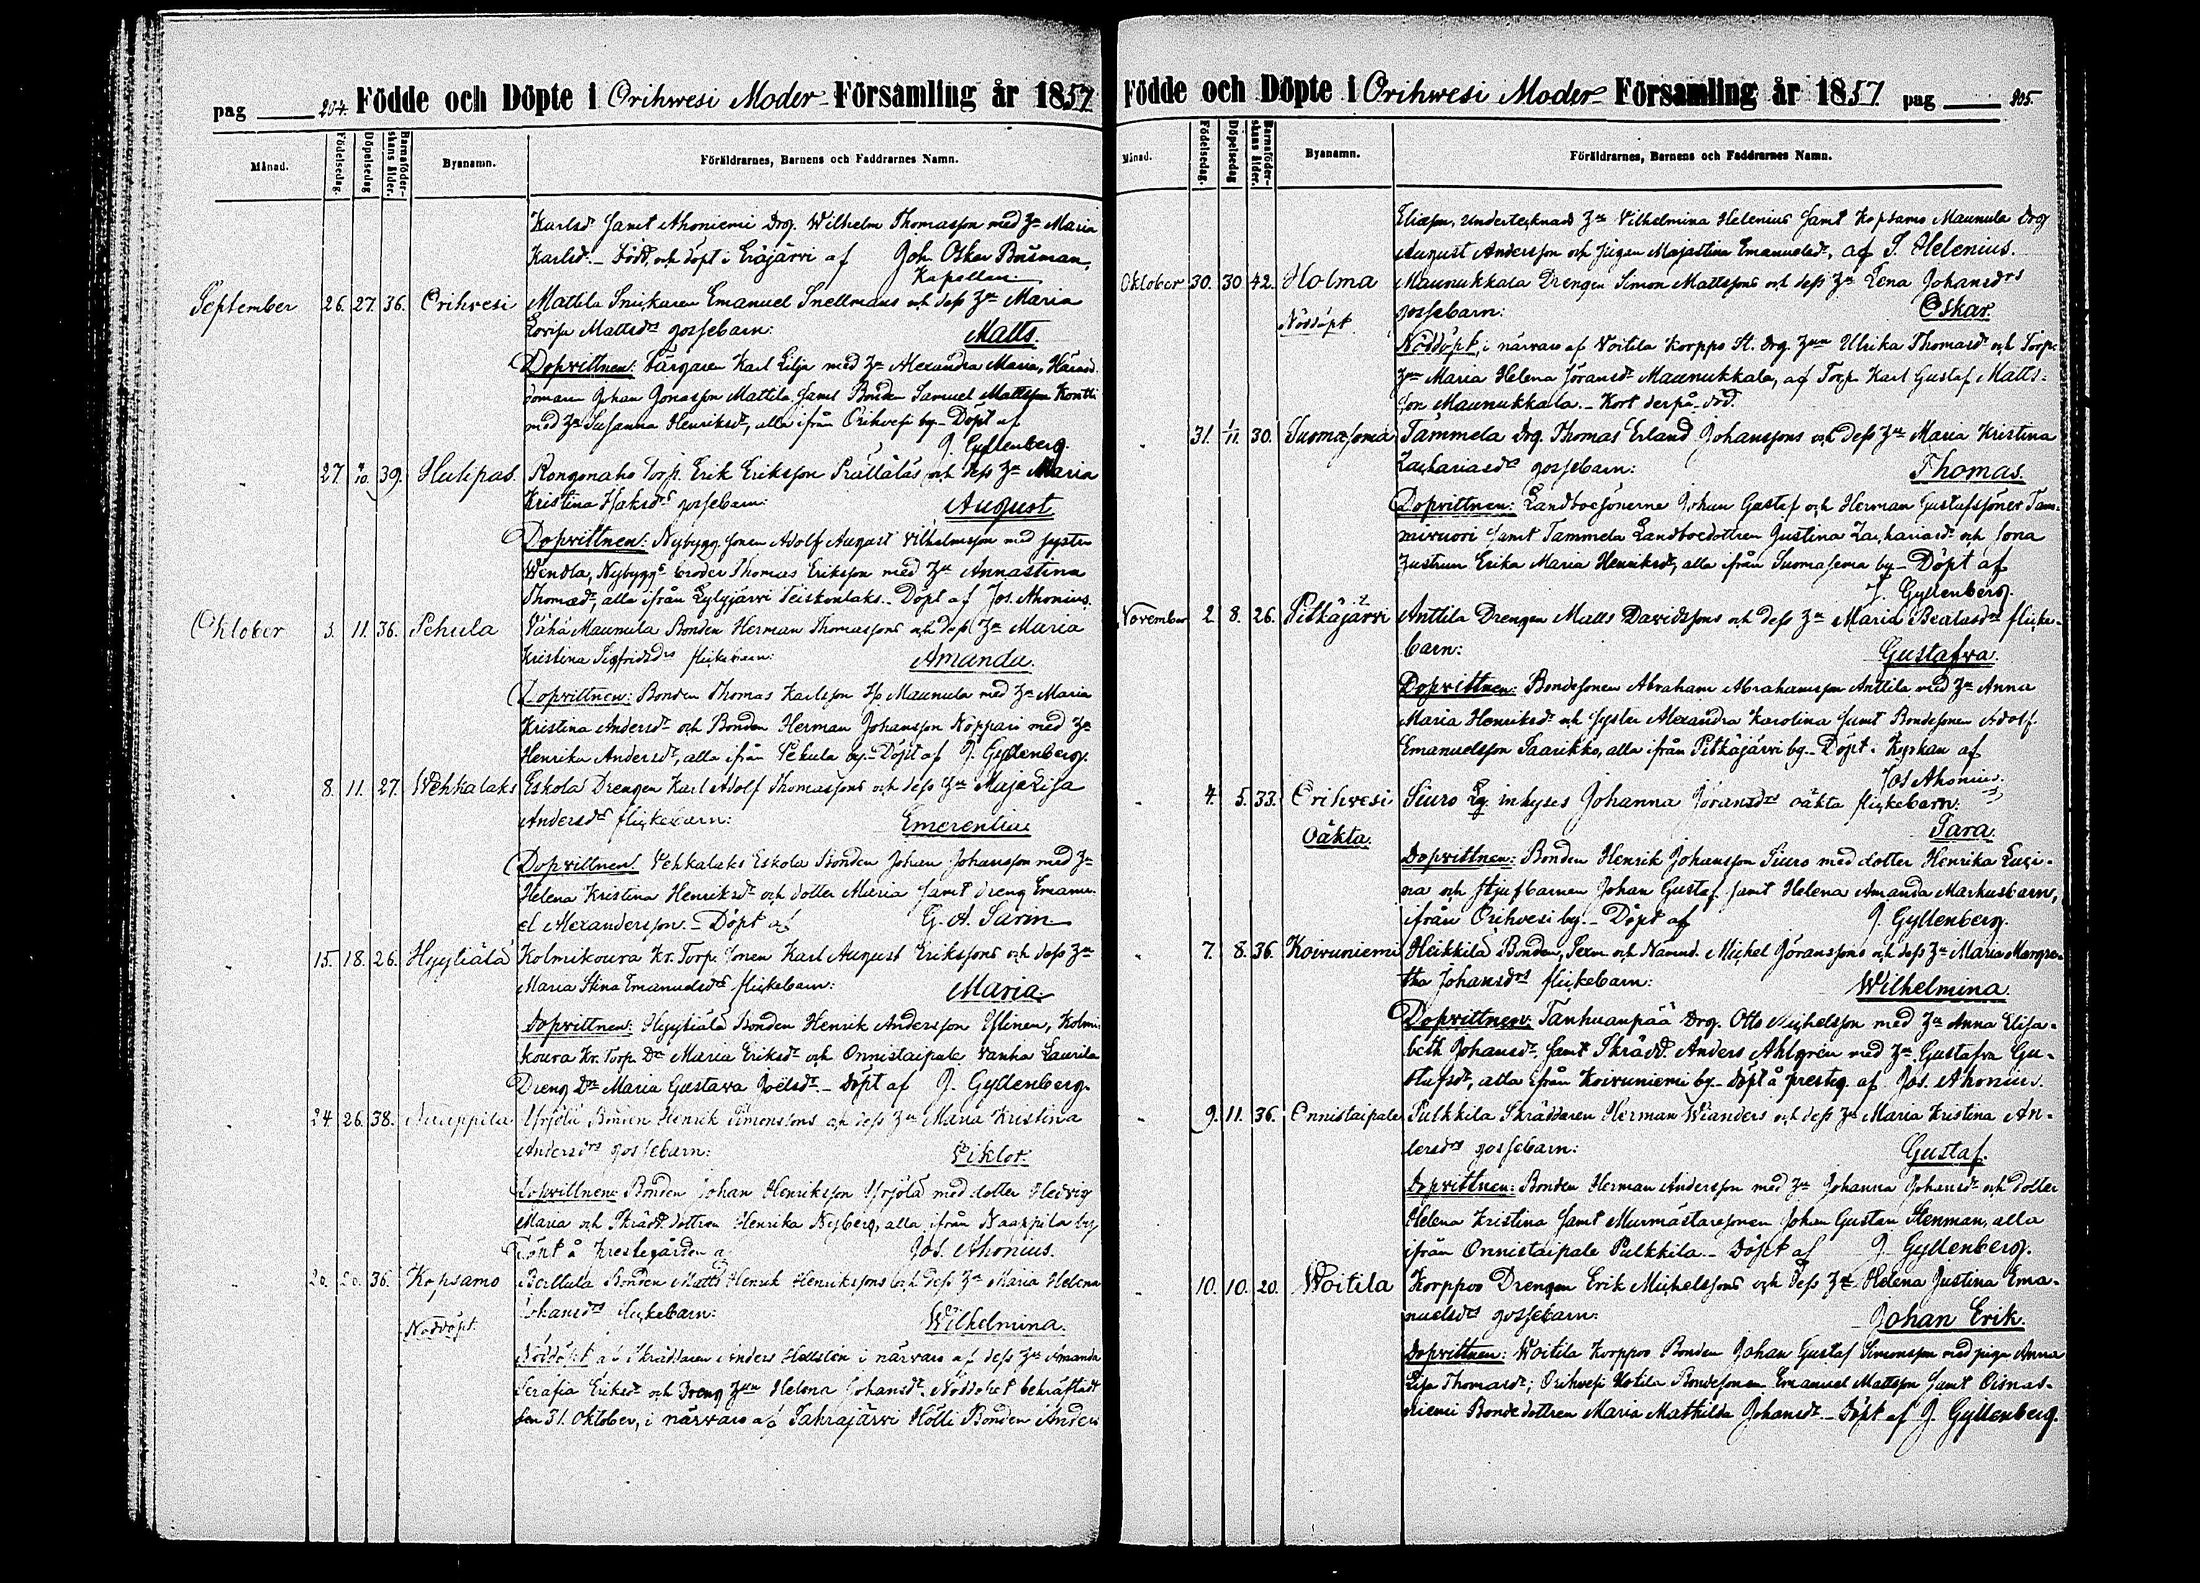 pag 204. Födde och Döpte i Orihwesi Moder-Församling år 1857
Månad. Födelsedag. Döpelsedag Barnaföderskans ålder. Byanamn. Föräldrarnes, Barnens och Faddrarnes Namn.
Karlsdr samt Ahoniemi Drg. Wilhelm Thomasson med Hu Maria
Karlsd. Född, och döpt i Eräjärvi af Joh. Oskar Busman,
Kapellan.
September 26. 27. 36. Orihvesi Mattila Snickaren Emanuel Snellmans och dess Hu Maria
Lovisa Mattsdrs gossebarn: Matts.
Dopvittnen: Färgaren Karl Lilja med Hu Alexandra Maria, Härad.
doman Johan Jonasson Mattila samt Bonden Samuel Mattsson Kontti
med Hu Susanna Henriksdr, alla ifrån Orihvesi by. Döpt af
J. Gyllenberg.
27. 4/10. 39. Hukipas. Rongonaho Torp. Erik Eriksson Prättäläs och dess Hu Maria
Kristina Isaksdrs gossebarn: August
Dopvittnen: Nybygg. sonen Adolf August Vilhelmsson med syster
Wendla, Nybyggs broder Thomas Eriksson med Hu Annastina
Thomasdr, alla ifrån Lylyjärvi Teiskonlaks. Döpt af Jos. Ahonius.
Oktober 3. 11. 36. Pehula Vähä Maunula Bonden Herman Thomassons och dess Hu Maria
Kristina Sigfridsdrs flickebarn: Amanda.
Dopvittnen: Bonden Thomas Karlsson Iso Maunula med Hu Maria
Kristina Andersdr och Bonden Herman Johansson Nöppäri med Hu
Henrika Andersdr, alla ifrån Pehula by. Döpt af J. Gyllenberg.
8. 11. 27. Wehkalaks Eskola Drengen Karl Adolf Thomassons och dess Hu Maja Lisa
Andersdrs flickebarn: Emerentia
Dopvittnen: Vehkalaks Eskola Bonden Johan Johansson med Hu
Helena Kristina Henriksdr och dotter Maria samt dreng Emanu-
el Alexandersson. Döpt af G. A. Sarin
15. 18. 26. Hyyliälä Kolmikoura Kr. Torp. sonen Karl August Erikssons och dess Hu
Maria Stina Emanuelsdrs flickebarn: Maria.
Dopvittnen: Hyyliälä Bonden Henrik Andersson Ylinen, Kolmi-
koura Kr. Torp. Dr Maria Eriksdr och Onnistaipale Vanha Laurila
Dreng Dr Maria Gustava Joelsdr. Döpt af J. Gyllenberg.
24. 26. 38. Naappila Yrjölä Bonden Henrik Simonssons och dess Hu Maria Kristina
Andersdrs gossebarn: Viktor.
Dopvittnen: Bonden Johan Henriksson Yrjölä med dotter Hedvig
Maria och Skrädd. dottren Henrika Nyberg, alla ifrån Naappila by
Döpt å Prestegården af Jos. Ahonius.
26. 26. 36. Kopsamo Perttula Bonden Matts Henrik Henrikssons och dess Hu Maria Helena
Nöddöpt. Johansdrs flickebarn: Wilhelmina.
Nöddöpt af Skräddaren Anders Hellstén i närvaro af dess Hu Amanda
Serafia Eriksdr och Dreng Hun Helena Johansdr. Nöddopet bekräftadt
den 31. Oktober, i närvaro af Sahrajärvi Hölli Bonden Anders
Födde och Döpte i Orihwesi Moder-Församling år 1857 pag 205.
Månad. Födelsedag. Döpelsedag Barnaföderskans ålder. Byanamn. Föräldrarnes, Barnens och Faddrarnes Namn.
Eliasson, undertecknads Hu Vilhelmina Helenius samt Kopsamo Maunula Drg
August Andersson och pigan Majastina Emanuelsdr, af S. Helenius.
Oktober 30. 30 42. Holma Maunukkala Drengen Simon Mattssons och dess Hu Lena Johansdrs
Nöddöpt gossebarn: Oskar.
Nöddöpt, i närvaro af Voitila Korppo St. drg. Hun Ulrika Thomasdr och Torp.
Hu Maria Helena Göransdr Maunukkala, af Torp. Karl Gustaf Matts-
son Maunukkala. Kort derpå död.
31. 1/11. 30. Suomasema Tämmelä Drg. Thomas Erland Johanssons och dess Hu Maria Kristina
Zachariasdrs gossebarn: Thomas.
Dopvittnen: Landboesönerne Johan Gustaf och Herman Gustafssöner Tam-
mivuori samt Tammela Landboedottren Justina Zachariasdr och sona
hustrun Erika Maria Henriksdr, alla ifrån Suomasema by. Döpt af
J. Gyllenberg.
November 2. 8. 26. Pitkäjärvi Anttila Drengen Matts Davidssons och dess Hu Maria Beatasdrs flicke-
barn: Gustafva.
Dopvittnen: Bondesonen Abraham Abrahamsson Anttila med Hu Anna
Maria Henriksdr och syster Alexandra Karolina samt Bondesonen Adolf
Emanuelsson Saarikko, alla ifrån Pitkäjärvi by. Döpt i Kyrkan af
Jos Ahonius.
4. 5. 33. Orihvesi Siuro Lg. inhyses Johanna Göransdrs oäkta flickebarn:
Oäkta. Sara.
Dopvittnen: Bonden Henrik Johansson Siuro med dotter Henrika Luci-
na och styfbarnen Johan Gustaf samt Helena Amanda Markusbarn,
ifrån Orihvesi by. Döpt af J. Gyllenberg.
7. 8. 36. Koivuniemi Heikkilä Bonden, Sexm. och Nämnd. Michel Göranssons och dess Hu Maria Margre-
tha Johansdrs flickebarn: Wilhelmina.
Dopvittnen: Tanhuanpää Drg. Otto Michelsson med Hu Anna Elisa-
beth Johansdr, samt Skrädd. Anders Ahlgrén med Hu Gustafva Gu-
stafsdr, alla ifrån Koivuniemi by. Döpt å presteg. af Jos. Ahonius.
9. 11. 36. Onnistaipale Pulkkila Skräddaren Herman Wianders och dess Hu Maria Kristina An-
dersdrs gossebarn: Gustaf.
Dopvittnen: Bonden Herman Andersson med Hu Johanna Johansdr och dotter
Helena Kristina samt Murmästaresonen Johan Gustav Stenman, alla
ifrån Onnistaipale Pulkkila. Döpt af J. Gyllenberg.
10. 10. 20. Woitila Korppoo Drengen Erik Michelssons och dess Hu Helena Justina Ema-
nuelsdrs gossebarn: Johan Erik.
Dopvittnen: Woitila Korppoo Bonden Johan Gustaf Simonsson med piga Anna
Lisa Thomasdr; Orihvesi Uotila Bondesonen Emanuel Mattsson samt Oisnas-
niemi Bonde dottren Maria Mathilda Johansdr. Döpt af J. Gyllenberg.